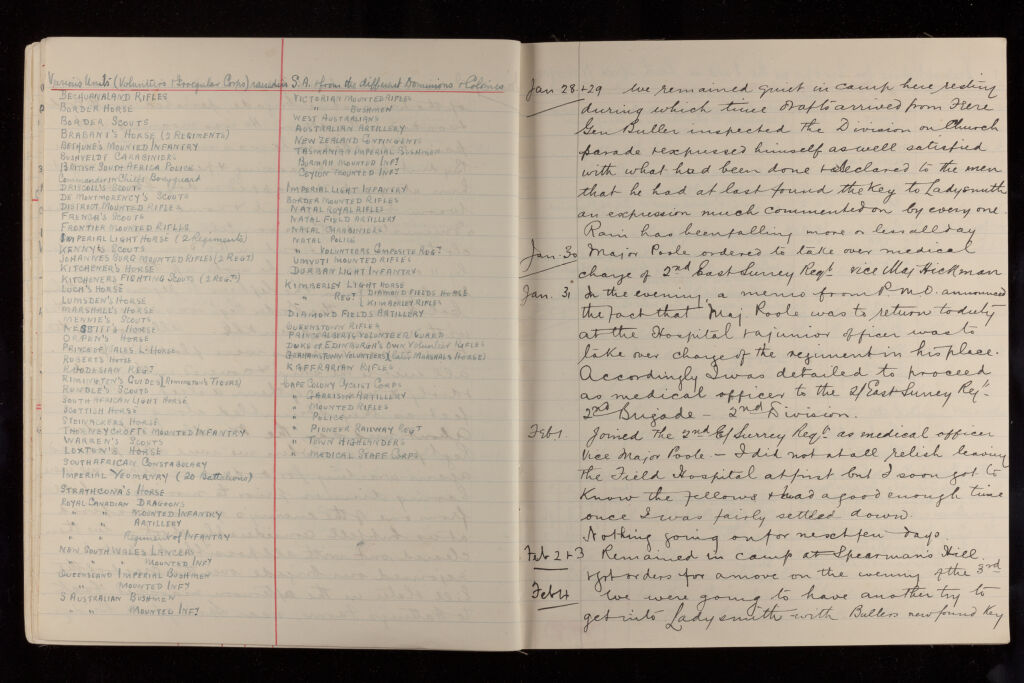 Various Units (Volunteers & Irregular Corps) raised in S.A. & from the different Dominions & Colonies
BECHUANALAND RIFLES
BORDER HORSE
BORDER SCOUTS
BRABANT'S HORSE (2 REGIMENTS)
BETHUNE'S MOUNTED INFANTRY
BUSHVELDT CARABINIERS
BRITISH SOUTH AFRICA POLICE
COMMANDER IN CHIEF'S BODYGUARD
DRISCOLL'S SCOUTS
DE MONTMORENCY'S SCOUTS
DISTRICT MOUNTED RIFLES
FRENCH'S SCOUTS
FRONTIER MOUNTED RIFLES
IMPERIAL LIGHT HORSE (2 Regiments)
KENNY'S SCOUTS
JOHANNESBURG MOUNTED RIFLES (2 REGT)
KITCHENER'S HORSE
KITCHENERS FIGHTING SCOUTS (2 REGTS)
LOCH'S HORSE
LUMSDEN'S HORSE
MARSHALL'S HORSE
MENNIE'S SCOUTS
NESBITT'S HORSE
ORPEN'S HORSE
PRINCE OF WALES L. HORSE
ROBERTS HORSE
RHODESIAN REGT
RIMINGTON'S GUIDES (RIMINGTON'S TIGERS)
RUNDLE'S SCOUTS
SOUTH AFRICAN LIGHT HORSE
SCOTTISH HORSE
STEINACKERS HORSE
THORNEYCROFTS MOUNTED INFANTRY
WARREN'S SCOUTS
LOXTON'S HORSE
SOUTH AFRICAN CONSTABULARY
IMPERIAL YEOMANRY (20 Battalions)
STRATHCONA'S HORSE
ROYAL CANADIAN DRAGOONS
" " MOUNTED INFANTRY
" " ARTILLERY
" " Regiment of INFANTRY
NEW SOUTH WALES LANCERS
" " " MOUNTED INFY
QUEENSLAND IMPERIAL BUSHMEN
" " MOUNTED INFY
S AUSTRALIAN BUSHMEN
" " MOUNTED INFY
VICTORIAN MOUNTED RIFLES
" BUSHMEN
WEST AUSTRALIANS
AUSTRALIAN ARTILLERY
NEW ZEALAND CONTINGENTS
TASMANIAN IMPERIAL BUSHMEN
BURMAH MOUNTED INFY
CEYLON MOUNTED INFY
IMPERIAL LIGHT INFANTRY
BORDER MOUNTED RIFLES
NATAL ROYAL RIFLES
NATAL FIELD ARTILLERY
NATAL CARABINIERS
NATAL POLICE
" VOLUNTEERS COMPOSITE REGT
UMVOTI MOUNTED RIFLES
DURBAN LIGHT INFANTRY
KIMBERLEY LIGHT HORSE
" REGT { DIAMOND FIELDS HORSE
{ KIMBERLEY RIFLES
DIAMOND FIELDS ARTILLERY
QUEENSTOWN RIFLES
PRINCE ALBERTS VOLUNTEER GUARD
DUKE OF EDINBURGH'S OWN VOLUNTEER RIFLES
GRAHAMSTOWN VOLUNTEERS (late MARSHALS HORSE)
KAFFRARIAN RIFLES
CAPE COLONY CYCLIST CORPS
" GARRISON ARTILLERY
" MOUNTED RIFLES
" POLICE
" PIONEER RAILWAY REGT
" TOWN HIGHLANDERS
" MEDICAL STAFF CORPS
Jan 28 + 29 We remained quiet in camp here resting
during which time drafts arrived from Frere
Gen Buller inspected the Division on Church
parade & expressed himself as well satisfied
with what had been done & declared to the men
that he had at last found the Key to Ladysmith
an expression much commented on by everyone.
Rain has been falling more or less all day
Jan. 30 Major Poole ordered to take over medical
charge of 2nd East Surrey Regt vice Maj Hickman
Jan. 31 In the evening, a memo from P.M.O. announced
the fact that Maj. Poole was to return to duty
at the Hospital & a junior officer was to
take over charge of the regiment in his place.
Accordingly I was detailed to proceed
as medical officer to the 2/East Surrey Regt.
2nd Brigade — 2nd Division.
Feb 1. Joined the 2nd E/Surrey Regt as medical officer
vice Major Poole — I did not at all relish leaving
the Field Hospital at first but I soon got to
know the fellows & had a good enough time
once I was fairly settled down.
Nothing going on for next few days.
Feb 2 + 3 Remained in camp at Spearman's Hill.
& got orders for a move on the evening of the 3rd
Feb 4 We were going to have another try to
get into Ladysmith with Bullers new found Key